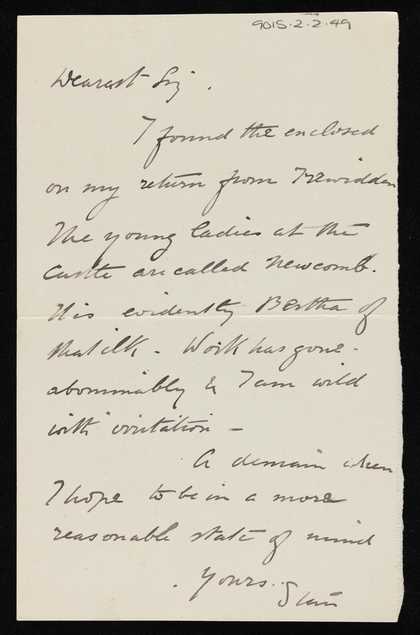 9015.2.2.49
Dearest Siz.
I found the enclosed
on my return from Trewidden
The young ladies at the
Castle are called Newcomb.
It is evidently Bertha of
that ilk - Work has gone
abominably & I am wild
with irritation -
A demain when
I hope to be in a more
reasonable state of mind
Yours